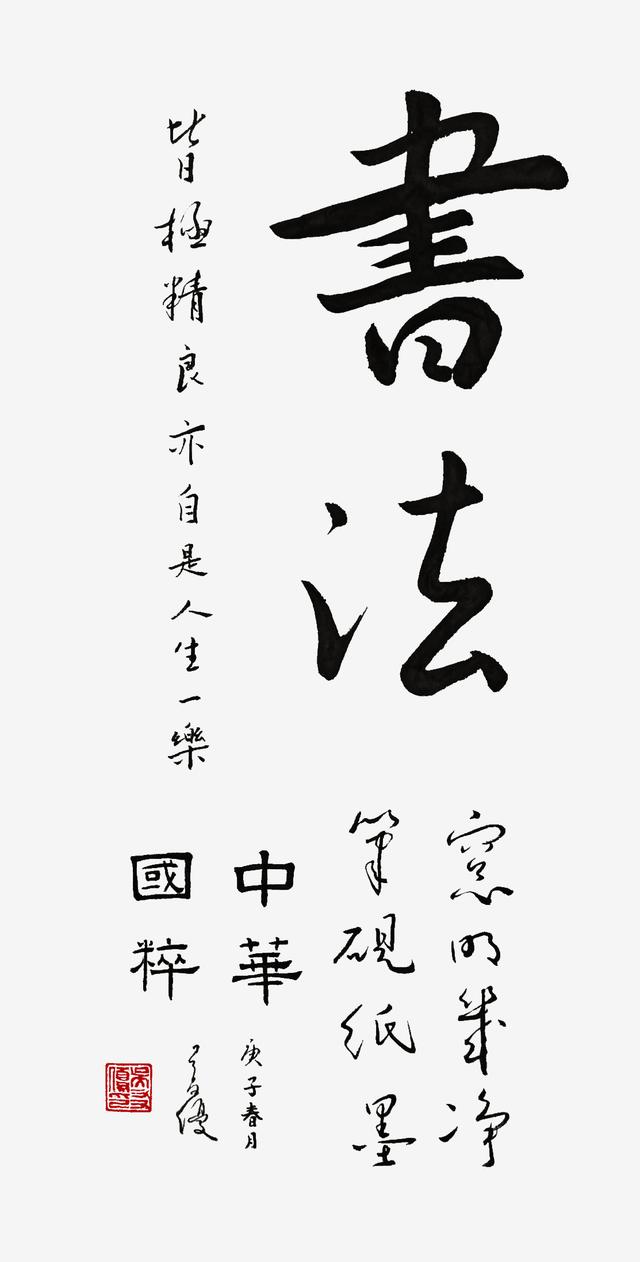 書法
窓明幾净
筆硯紙墨
皆極精良亦自是人生一樂
中華
國粹
庚子春月